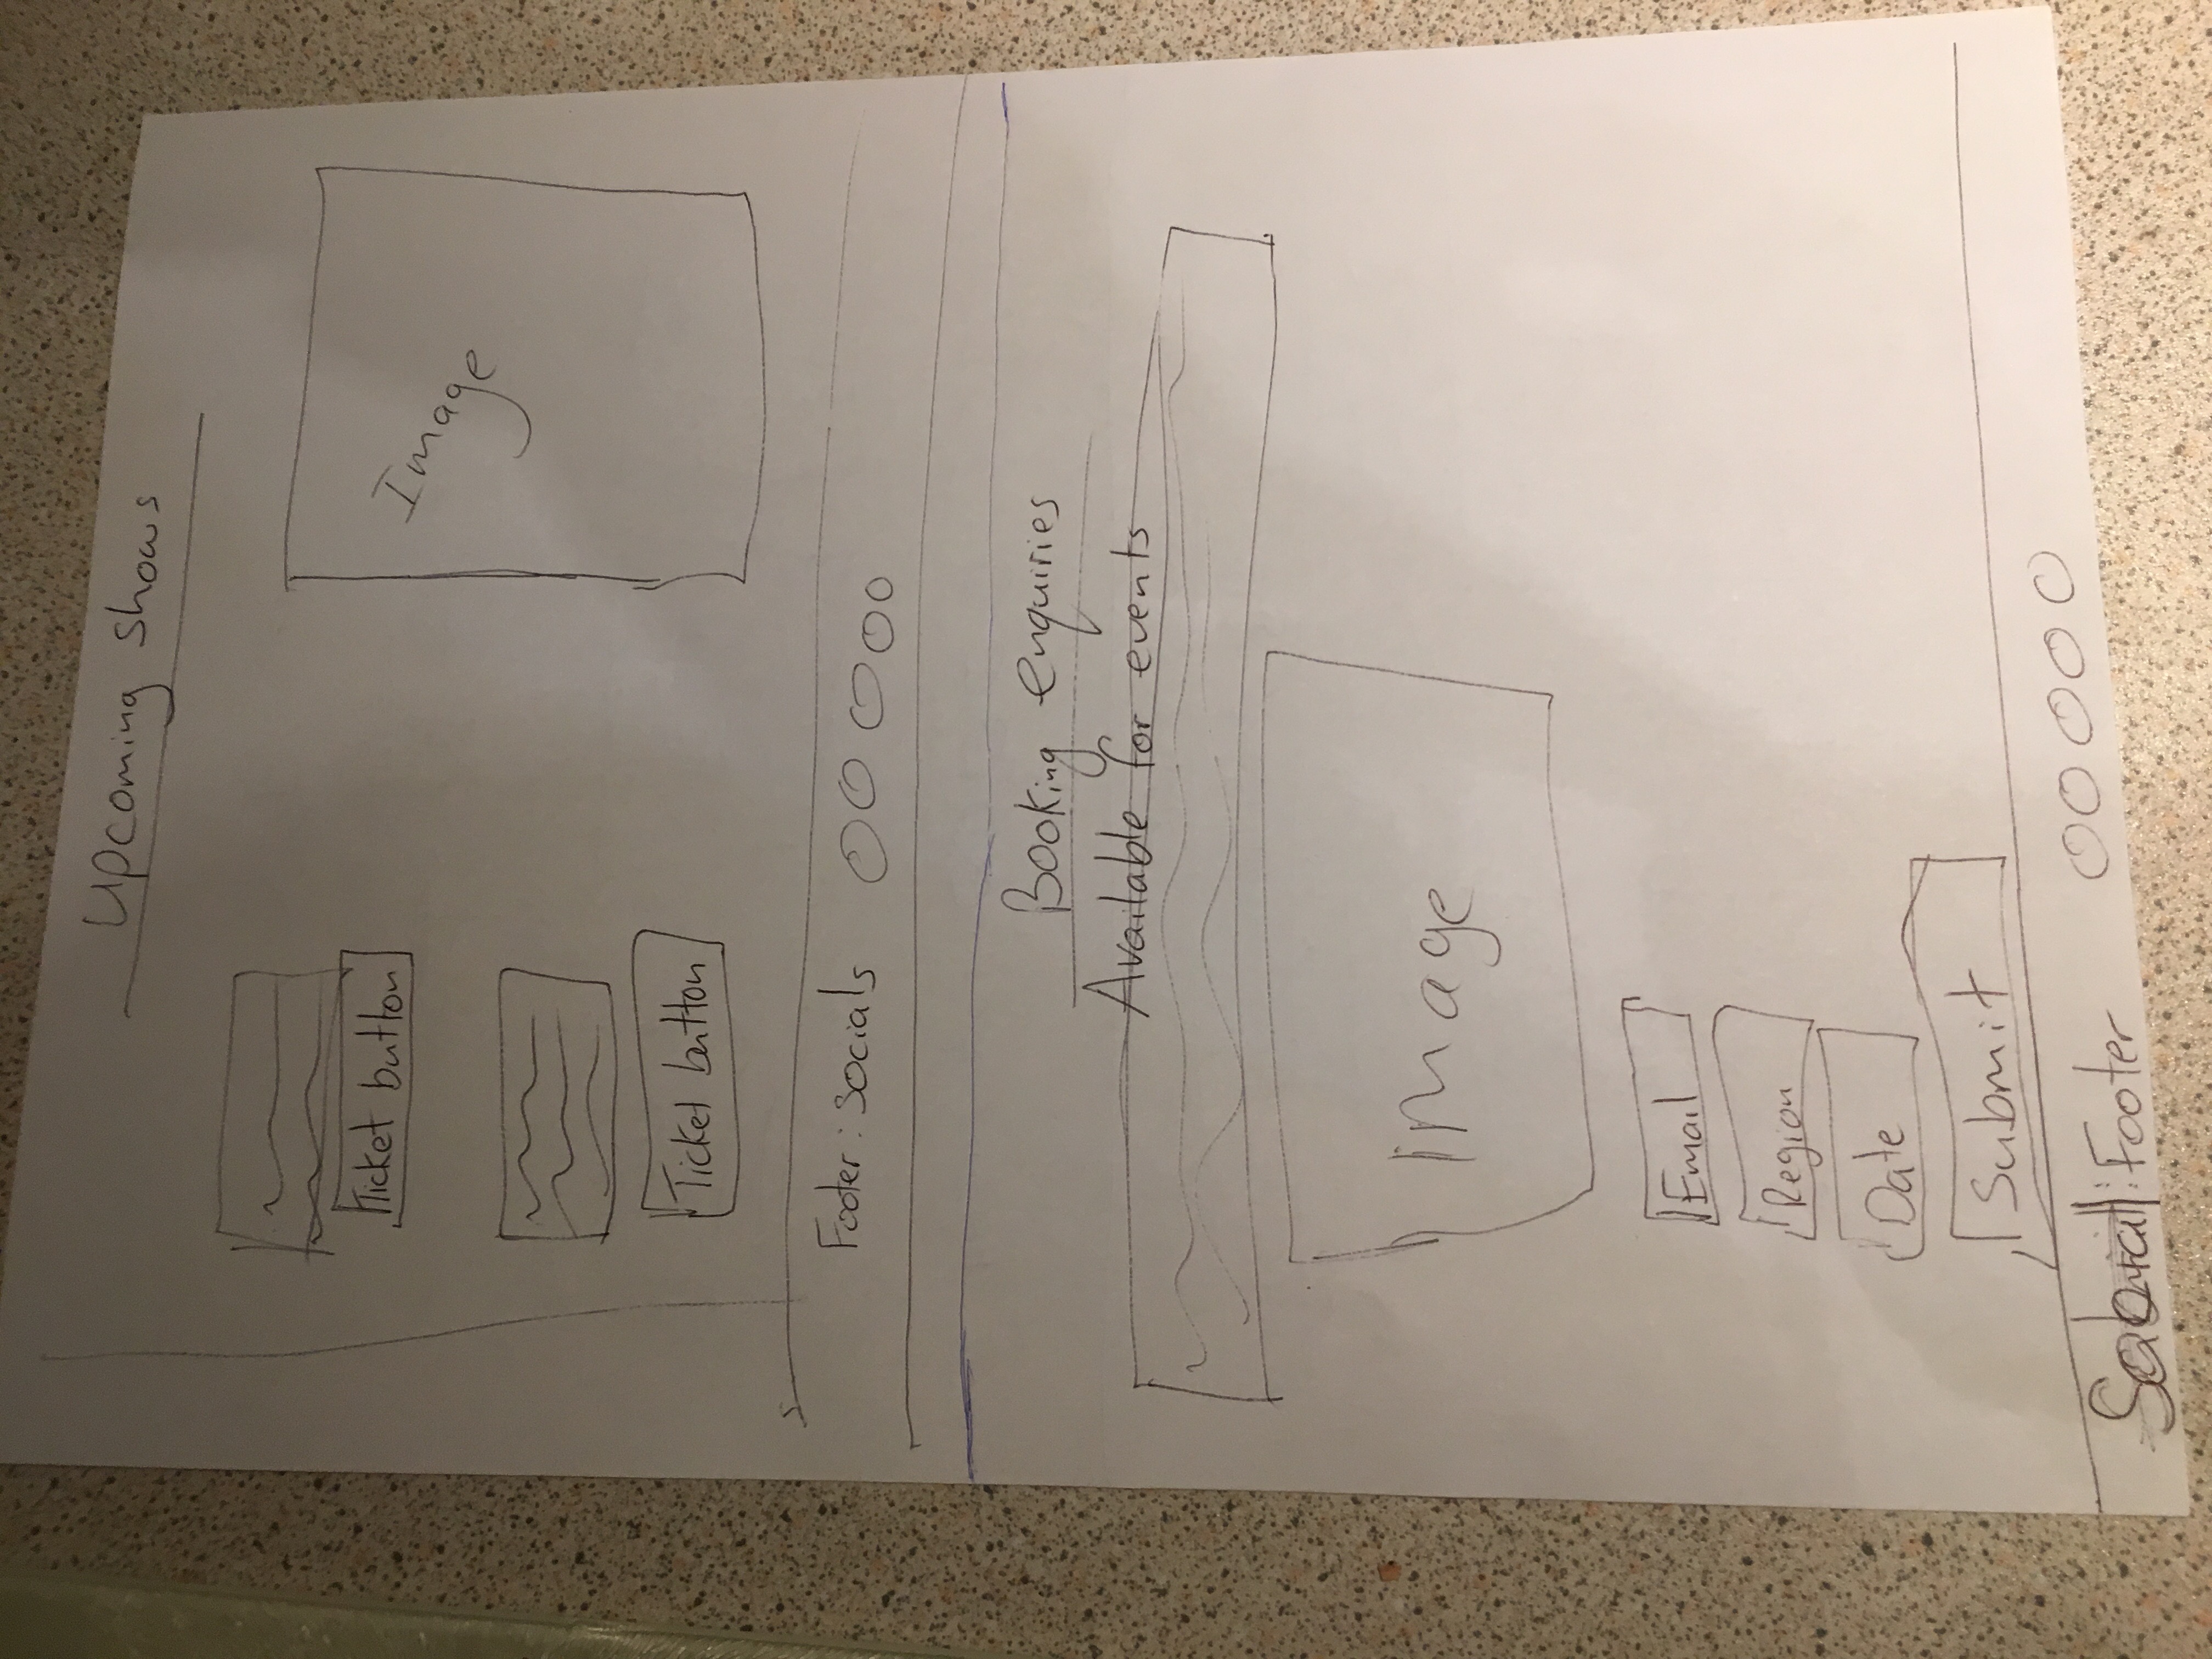 Upcoming shows
Ticket button
Image
Ticket button
Footer: socials
Booking enquiries
Available for events
Image
Email
Region
Date
Submit
: Footer